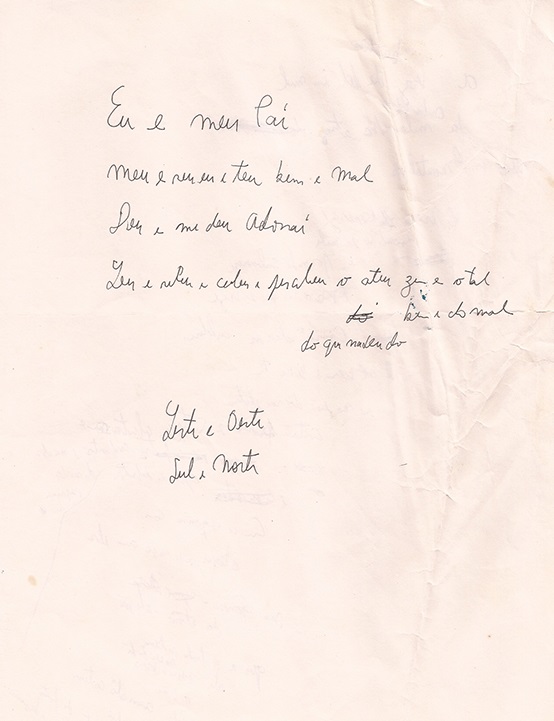 Eu e meu Pai
meu e seu eu e teu bem e mal
Deu e me deu Adonai
Leu e releu e e percebeu o ateu e o tal
do bem e do mal
do que nasceu do
Leste e Oeste
Sul e Norte